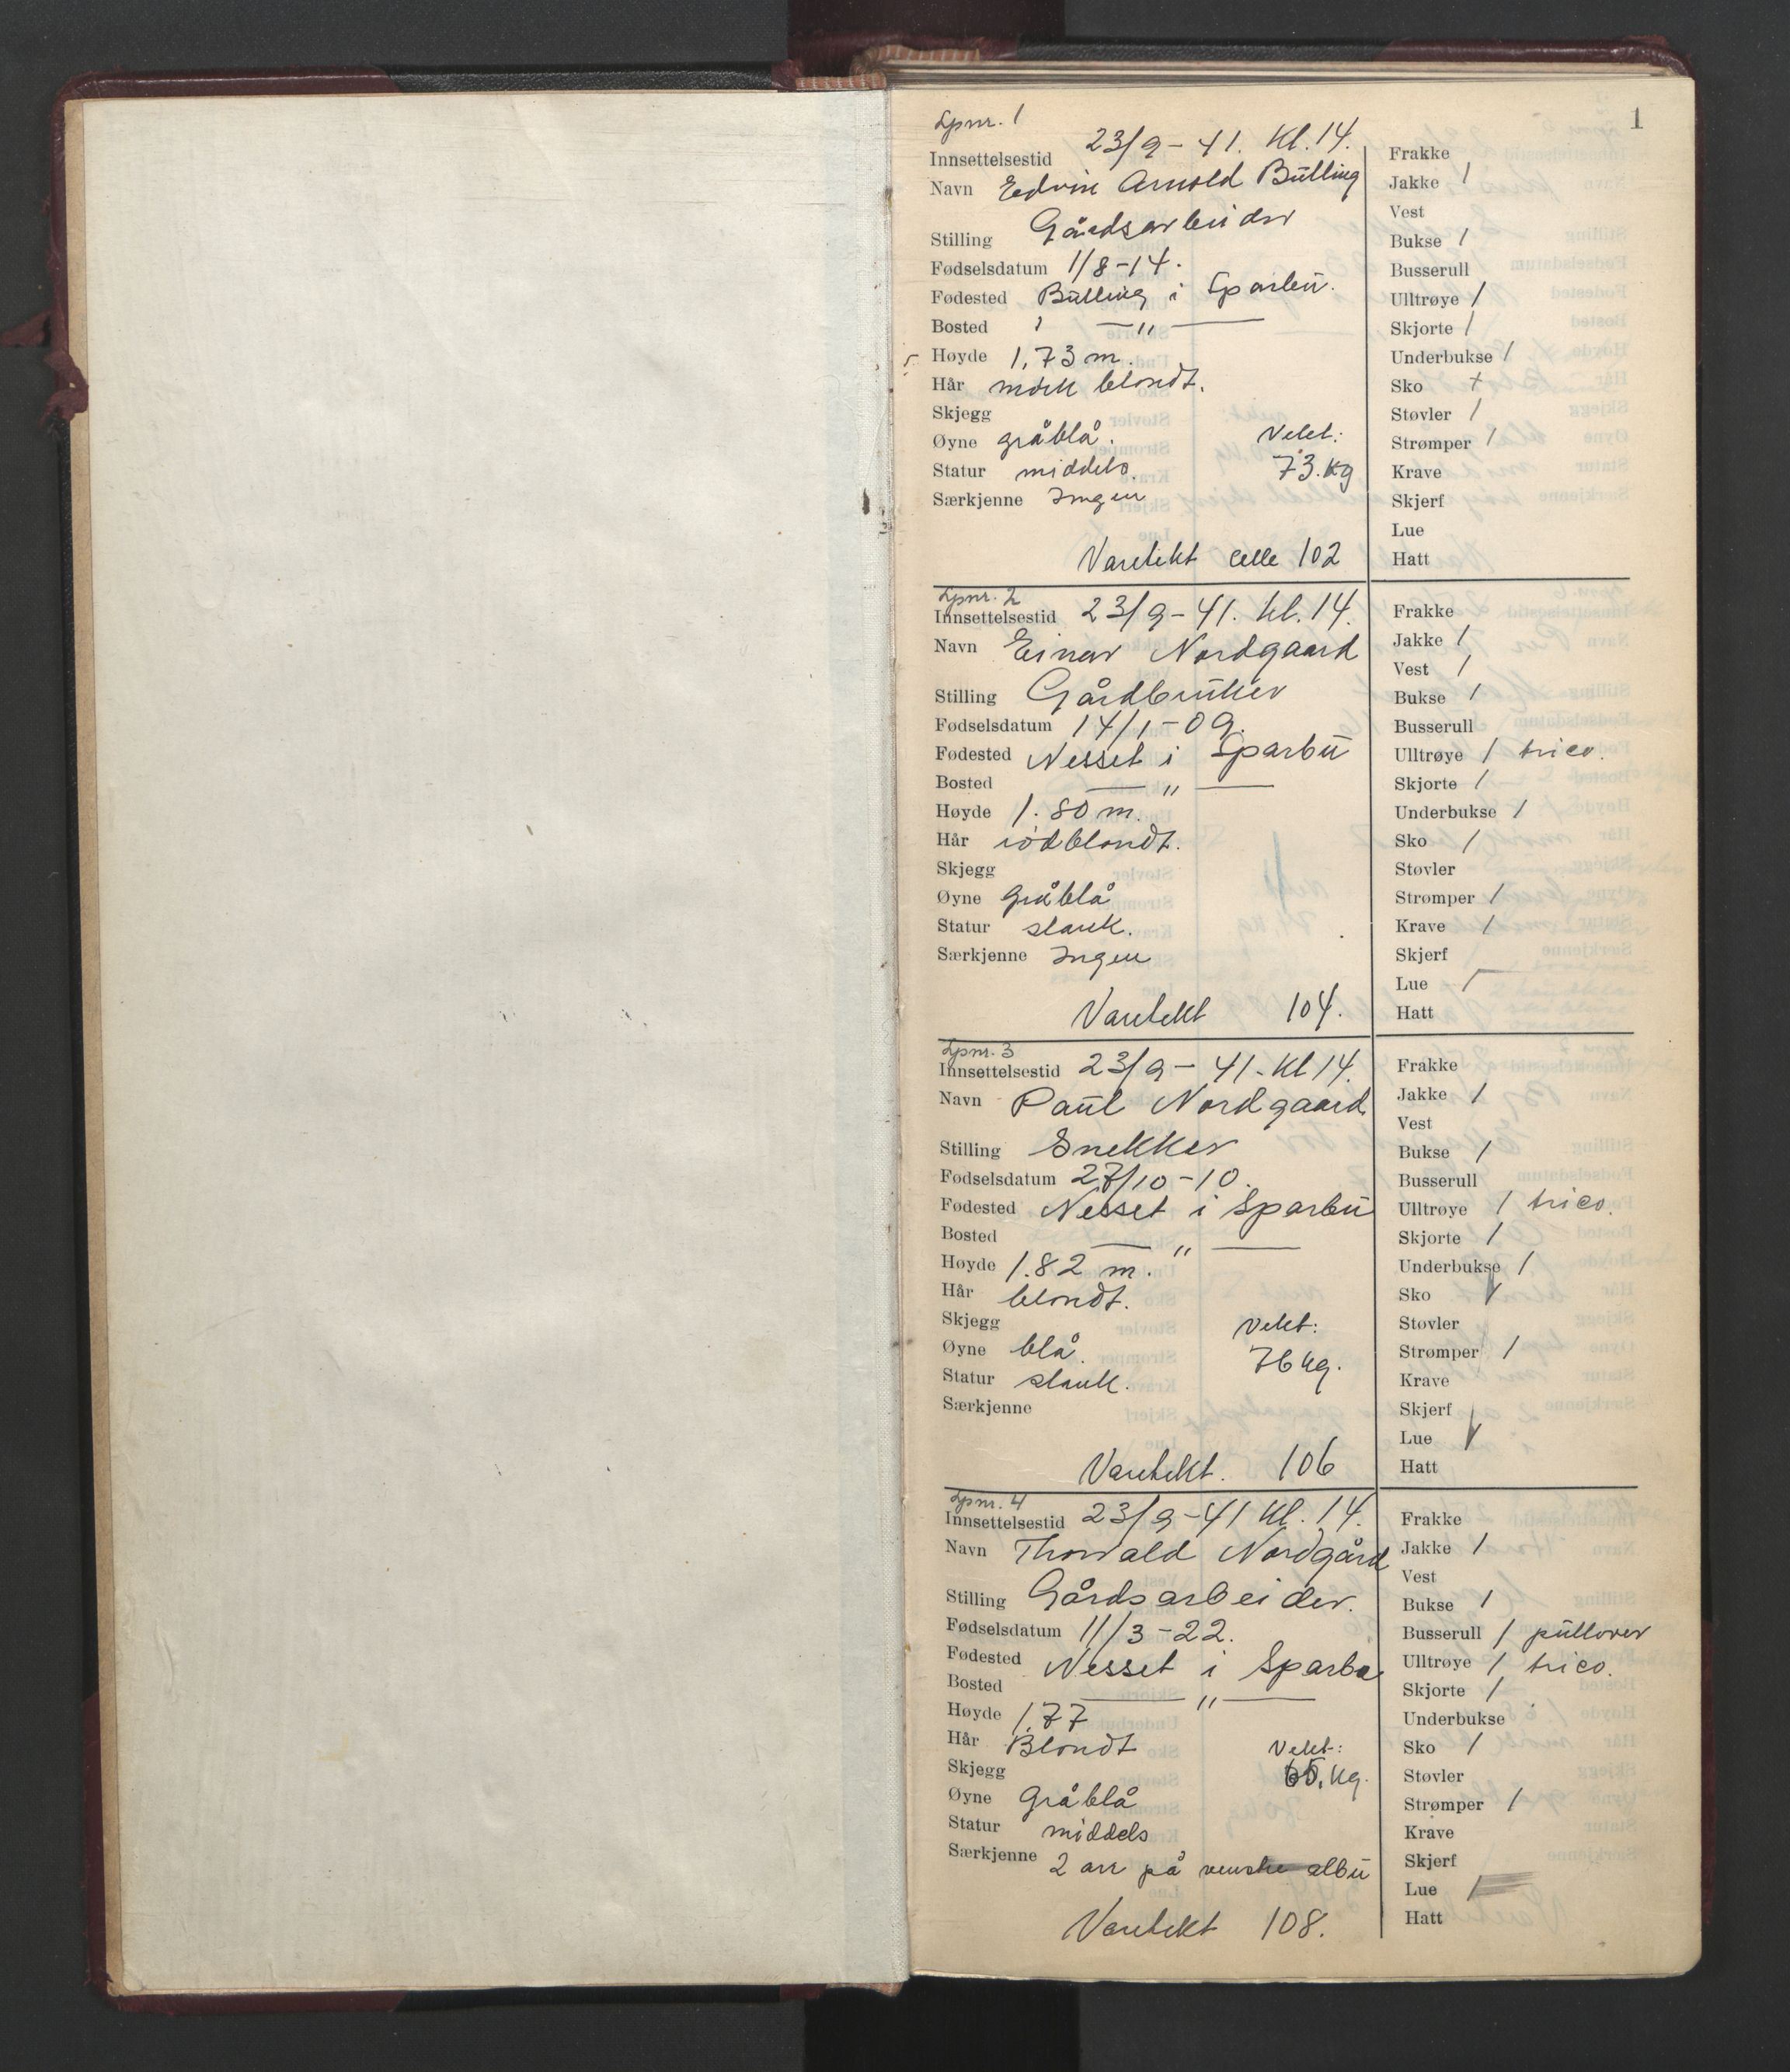 1
Lpnr. 1
Innsettelsestid 23/9-41. Kl. 14.
Navn Edvin Arnold Bülling
Stilling Gårdsarbeider
Fødselsdatum 1/8-14.
Fødested Bülling i Sparbü.
Bosted i —"—
Høyde 1,73 m.
Hår mørk blondt.
Skjegg
Øyne gråblå. Vekt:
Statur middels. 73.kg
Særkjenne Ingen
Varetekt celle 102
Frakke
Jakke 1
Vest
Bukse 1
Busserull
Ulltrøye 1
Skjorte 1
Underbukse 1
Sko +
Støvler 1
Strømper 1
Krave
Skjerf
Lue
Hatt
Lpnr. 2
Innsettelsestid 23/9-41. kl. 14.
Navn Einar Nordgaard
Stilling Gårdbrüker
Fødselsdatum 14/1-09.
Fødested Nesset i Sparbü
Bosted —"—
Høyde 1.80 m.
Hår rødblondt.
Skjegg
Øyne Gråblå
Statur slank.
Særkjenne Ingen
Varetekt 104.
Frakke
Jakke 1
Vest 1
Bukse 1
Busserull
Ulltrøye 1 trico.
Skjorte 1
Underbukse 1
Sko 1
Støvler
Strømper 1
Krave 1
Skjerf
Lue 1
Hatt
Lpnr. 3
Innsettelsestid 23/9-41. Kl 14.
Navn Paül Nordgaard
Stilling Snekker
Fødselsdatum 27/10-10.
Fødested Nesset i Sparbü
Bosted —"—
Høyde 1.82 m.
Hår blondt.
Skjegg Vekt:
Øyne blå. 76 kg.
Statur slank.
Særkjenne
Varetekt. 106
Frakke
Jakke 1
Vest
Bukse 1
Busserull
Ulltrøye 1 trico.
Skjorte 1
Underbukse 1
Sko 1
Støvler
Strømper 1
Krave
Skjerf
Lue 1
Hatt
Lpnr. 4
Innsettelsestid 23/9-41 Kl. 14.
Navn Thorvald Nordgård
Stilling Gårdsarbeider.
Fødselsdatum 11/3-22.
Fødested Nesset i Sparbu
Bosted —"—
Høyde 1.77
Hår Blondt Vekt:
Skjegg 65.kg.
Øyne Gråblå
Statur middels
Særkjenne 2 arr på venstre albü
Varetekt 108.
Frakke
Jakke 1
Vest
Bukse 1
Busserull 1 püllover
Ulltrøye 1 trico.
Skjorte 1
Underbukse
Sko 1
Støvler
Strømper 1
Krave
Skjerf
Lue 1
Hatt